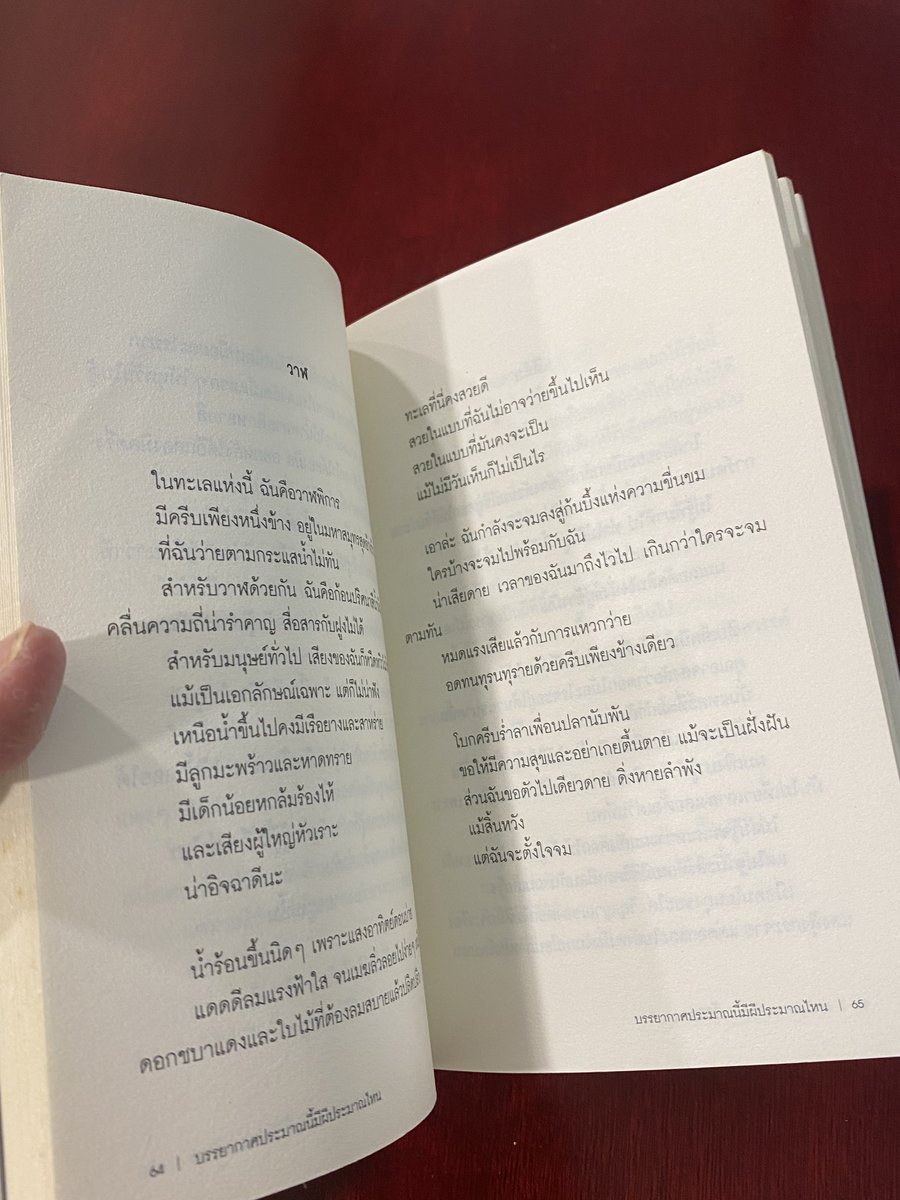 วาฬ
ในทะเลแห่งนี้ ฉันคือวาฬพิการ
มีครีบเพียงหนึ่งข้าง อยู่ในมหาสมุทร
ที่ฉันว่ายตามกระแสน้ำไม่ทัน
สำหรับวาฬด้วยกัน ฉันคือก้อนปริศนา
คลื่นความถี่น่ารำคาญ สื่อสารกับฝูงไม่ได้
สำหรับมนุษย์ทั่วไป เสียงของฉันก็
แม้เป็นเอกลักษณ์เฉพาะ แต่ก็ไม่น่าฟัง
เหนือน้ำขึ้นไปคงมีเรือยางและสาหร่าย
มีลูกมะพร้าวและหาดทราย
มีเด็กน้อยหกล้มร้องไห้
และเสียงผู้ใหญ่หัวเราะ
น่าอิจฉาดีนะ
น้ำร้อนขึ้นนิดๆ เพราะแสงอาทิตย์ตอนบ่าย
แดดดีลมแรงฟ้าใส จนเมฆลิ่วลอยไปง่ายๆ
ดอกชบาแดงและใบไม้ที่ต้องลมสบายแล้วปลิดปลิว
64 | บรรยากาศประมาณนี้มีผีประมาณไหน
ทะเลที่นี่คงสวยดี
สวยในแบบที่ฉันไม่อาจว่ายขึ้นไปเห็น
สวยในแบบที่มันคงจะเป็น
แม้ไม่มีวันเห็นก็ไม่เป็นไร
เอาล่ะ ฉันกำลังจะจมลงสู่ก้นบึ้งแห่งความขื่นขม
ใครบ้างจะจมไปพร้อมกับฉัน
น่าเสียดาย เวลาของฉันมาถึงไวไป เกินกว่าใครจะจม
ตามทัน
หมดแรงเสียแล้วกับการแหวกว่าย
อดทนทุรนทุรายด้วยครีบเพียงข้างเดียว
โบกครีบร่ำลาเพื่อนปลานับพัน
ขอให้มีความสุขและอย่าเกยตื้นตาย แม้จะเป็นฝั่งฝัน
ส่วนฉันขอตัวไปเดียวดาย ดิ่งหายลำพัง
แม้สิ้นหวัง
แต่ฉันจะตั้งใจจม
บรรยากาศประมาณนี้มีผีประมาณไหน | 65